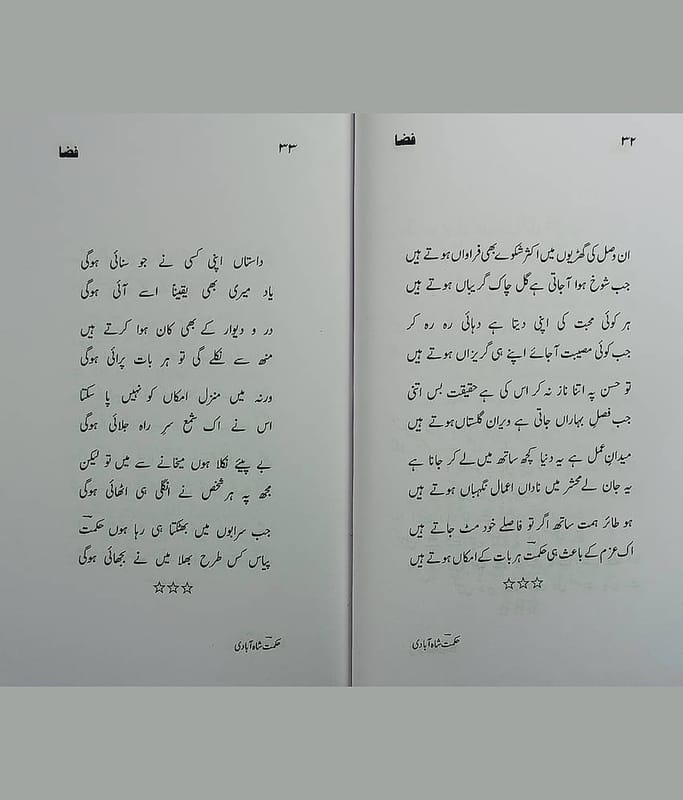 ۳۲
فضا
ان وصل کی گھڑیوں میں اکثر شکوے بھی فراواں ہوتے ہیں
جب شوخ ہوا آجاتی ہے گل چاک گریباں ہوتے ہیں
ہر کوئی محبت کی اپنی دیتا ہے دہائی رہ رہ کر
جب کوئی مصیبت آجائے اپنے ہی گریزاں ہوتے ہیں
تو حسن پہ اتنا ناز نہ کر اس کی ہے حقیقت بس اتنی
جب فصلِ بہاراں جاتی ہے ویران گلستاں ہوتے ہیں
میدانِ عمل ہے یہ دنیا کچھ ساتھ میں لے کر جانا ہے
یہ جان لے محشر میں ناداں اعمال نگہباں ہوتے ہیں
ہو طائرِ ہمت ساتھ اگر تو فاصلے خود مٹ جاتے ہیں
اک عزم کے باعث ہی حکمتؔ ہر بات کے امکاں ہوتے ہیں
☆☆☆
حکمتؔ شاہ آبادی
۳۳
فضا
داستاں اپنی کسی نے جو سنائی ہوگی
یاد میری بھی یقیناً اسے آئی ہوگی
در و دیوار کے بھی کان ہوا کرتے ہیں
منھ سے نکلے گی تو ہر بات پرائی ہوگی
ورنہ میں منزلِ امکاں کو نہیں پا سکتا
اس نے اک شمع سرِ راہ جلائی ہوگی
بے پیئے نکلا ہوں میخانے سے میں تو لیکن
مجھ پہ ہر شخص نے انگلی ہی اٹھائی ہوگی
جب سرابوں میں بھٹکتا ہی رہا ہوں حکمتؔ
پیاس کس طرح بھلا میں نے بجھائی ہوگی
☆☆☆
حکمتؔ شاہ آبادی